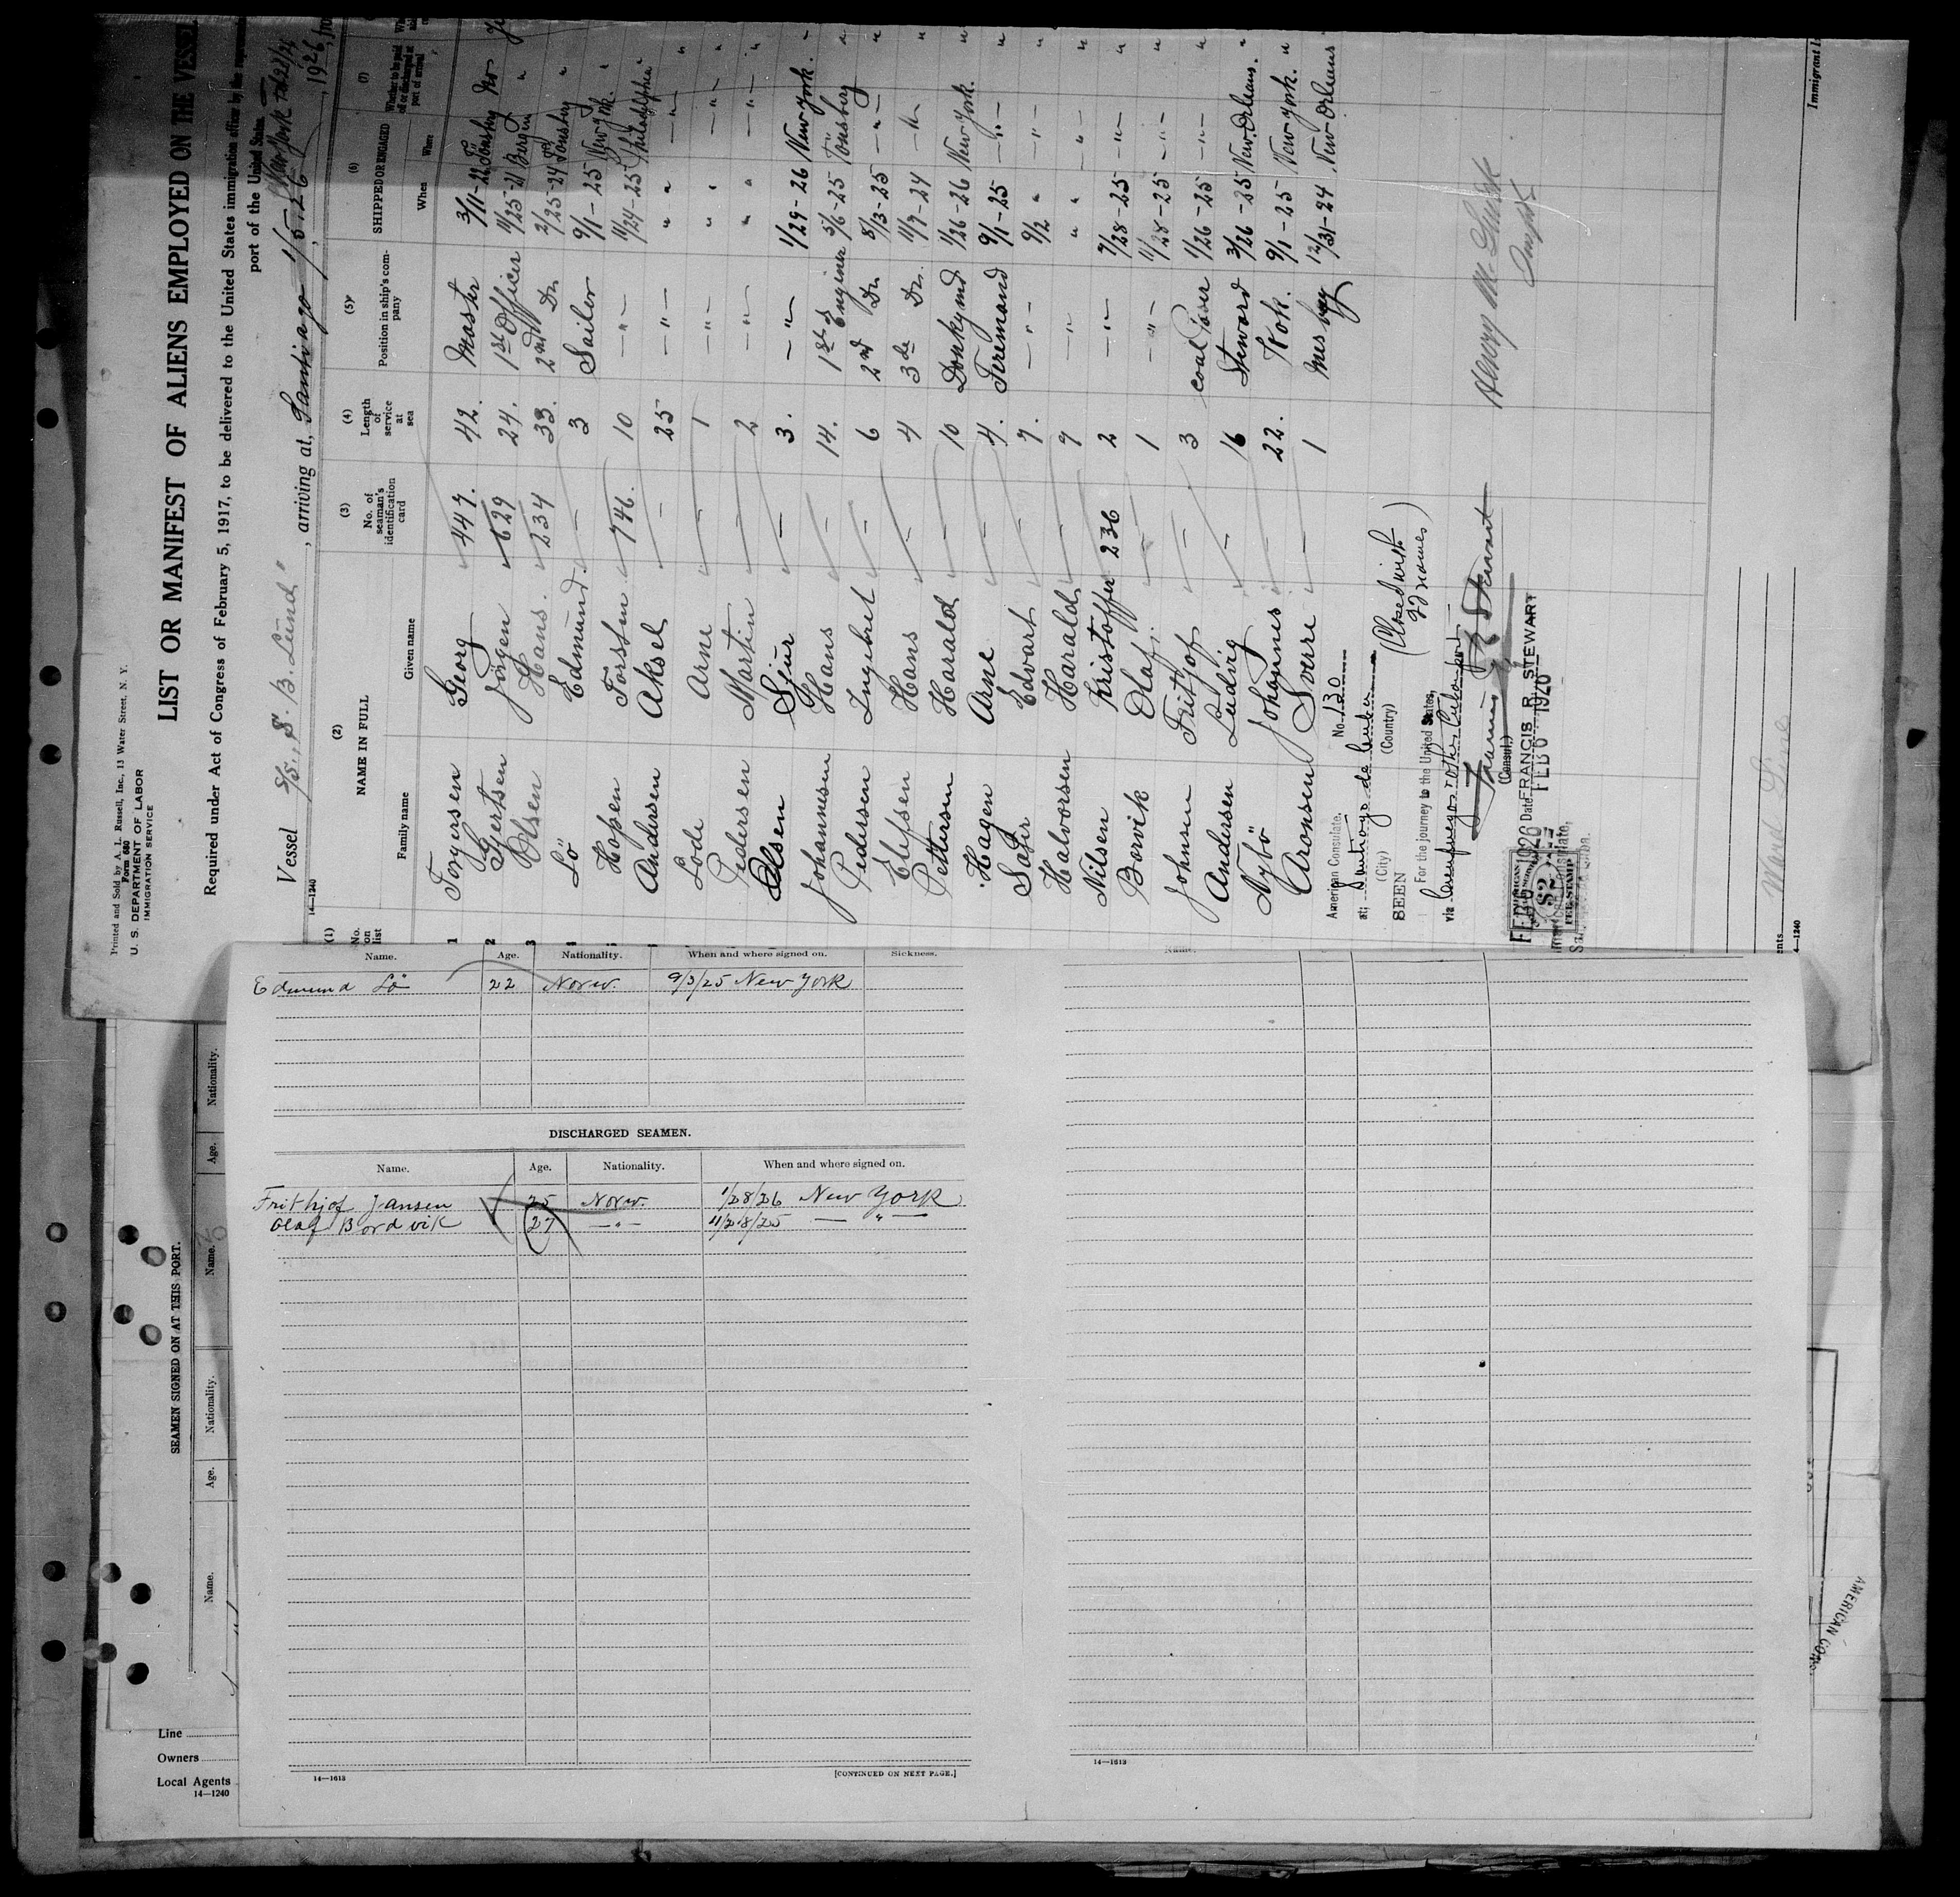 Printed and Sold by A. I. Russell, Inc., 13 Water Street, N. Y.
Form 680
U. S. DEPARTMENT OF LABOR
IMMIGRATION SERVICE
LIST OR MANIFEST OF ALIENS EMPLOYED ON THE VESSEL
Required under Act of Congress of February 5, 1917, to be delivered to the United States immigration officer by the
port of the United States
Vessel S/S. "S. B. Lund", arriving at Santiago 1/5.26, 1926,
14—1240
(1) (2) (3) (4) (5) (6) (7)
No. on list NAME IN FULL No. of seaman's identification card Length of service at sea Position in ship's company SHIPPED OR ENGAGED Whether to be paid off or discharged at port of arrival
Family name Given name When Where
1 Torgersen Georg 447. 42. Master 3/11-22 Tönsberg No
2 Gjertsen Jörgen 629 24. 1st Officer 11/25-21 Bergen "
3 Olsen Hans. 234 33. 2nd Do 2/25-24 Tönsberg "
4 Lö Edmund. — 3 Sailor 9/1-25 New York. "
Hopen Torstein 746. 10 —"— 11/24-25 Philadelphia "
Andersen Aksel — 25 —"— " —"— "
Lode Arne — 1 —"— " —"— "
Pedersen Martin — 2 —"— " —"— "
Olsen Sjur — 3. —"— 1/29-26 New York. "
Johannesen Hans — 14. 1st Enginer 5/6-25 Tönsberg "
Pedersen Ingebret — 6 2nd Do 8/13-25 —"— "
Elefsen Hans — 4 3de Do. 11/7-24 —"— "
Pettersen Harald — 10 Donkymd 1/26-26 New York. "
Hagen Arne — 4. Firemand 9/1-25 —"— "
Edvart — 7. —"— 9/2 " —"— "
Halvorsen Harald — 7 —"— " " "
Nilsen Kristoffer 236 2 —"— 7/28-25 —"— "
Borvik Olaf — 1 —"— 11/28-25 —"— "
Johnsen Fritjof — 3 coal Paser 1/26-25 —"— "
Andersen Ludvig — 16 Steward 3/26-25 New Orleans. "
Nybö Johannes — 22. Kok. 9/1-25 New York. "
Aronsen Sverre — 1 Mes boy 12/31-24 New Orleans "
American Consulate, No. 130
at; Santiago de Cuba
(City) (Country)
SEEN (Closed with 22 names)
For the journey to the United States,
via Cienfuegos
(Consul.)
Date FRANCIS R. STEWART
FEB 6 1926
$2
FEE STAMP
Ward Line
Immigrant I
14—1240
Name. Age. Nationality. When and where signed on. Sickness.
Edmund Lö 22 Norw. 9/3/25 New York
DISCHARGED SEAMEN.
Name. Age. Nationality. When and where signed on.
Frithjof Jansen 25 Norw. 1/28/26 New York
Olaf Bordvik 27 —"— 11/28/25 — " —
14—1613
[CONTINUED ON NEXT PAGE.]
14—1613
SEAMEN SIGNED ON AT THIS PORT.
Name. Age. Nationality. Name. Age. Nationality.
Line
Owners
Local Agents
14—1240
AMERICAN CON